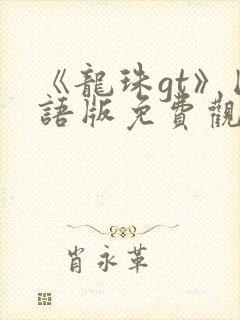 《龍珠gt》
語版免費觀
肖永革